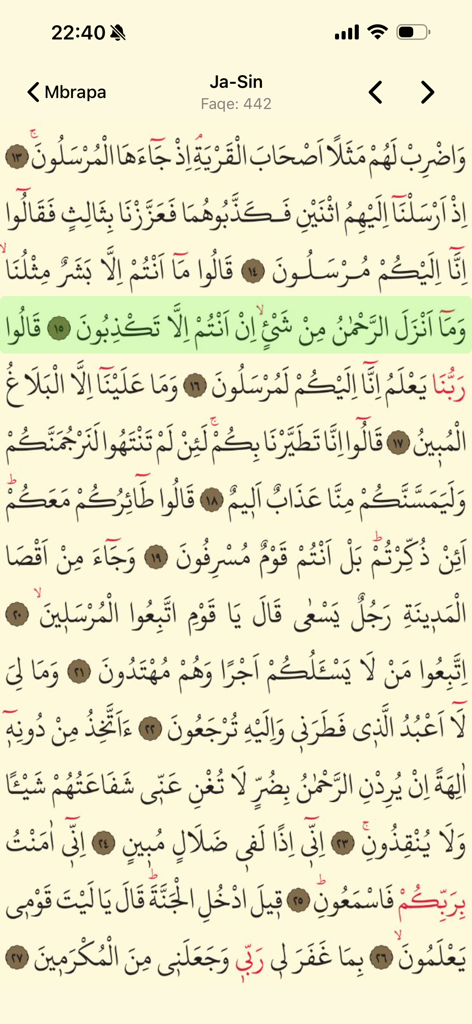 22:40
Mbrapa
Ja-Sin
Faqe: 442
وَاضْرِبْ لَهُمْ مَثَلًا اَصْحَابَ الْقَرْيَةِۘ اِذْ جَٓاءَهَا الْمُرْسَلُونَۚ ﴿١٣﴾
اِذْ اَرْسَلْنَٓا اِلَيْهِمُ اثْنَيْنِ فَكَذَّبُوهُمَا فَعَزَّزْنَا بِثَالِثٍ فَقَالُٓوا
اِنَّٓا اِلَيْكُمْ مُرْسَلُونَ ﴿١٤﴾ قَالُوا مَٓا اَنْتُمْ اِلَّا بَشَرٌ مِثْلُنَاۙ
وَمَٓا اَنْزَلَ الرَّحْمٰنُ مِنْ شَيْءٍۙ اِنْ اَنْتُمْ اِلَّا تَكْذِبُونَ ﴿١٥﴾ قَالُوا
رَبُّنَا يَعْلَمُ اِنَّٓا اِلَيْكُمْ لَمُرْسَلُونَ ﴿١٦﴾ وَمَا عَلَيْنَٓا اِلَّا الْبَلَاغُ
الْمُبٖينُ ﴿١٧﴾ قَالُٓوا اِنَّا تَطَيَّرْنَا بِكُمْۚ لَئِنْ لَمْ تَنْتَهُوا لَنَرْجُمَنَّكُمْ
وَلَيَمَسَّنَّكُمْ مِنَّا عَذَابٌ اَلٖيمٌ ﴿١٨﴾ قَالُوا طَٓائِرُكُمْ مَعَكُمْؕ
اَئِنْ ذُكِّرْتُمْؕ بَلْ اَنْتُمْ قَوْمٌ مُسْرِفُونَ ﴿١٩﴾ وَجَٓاءَ مِنْ اَقْصَا
الْمَدٖينَةِ رَجُلٌ يَسْعٰى قَالَ يَا قَوْمِ اتَّبِعُوا الْمُرْسَلٖينَۙ ﴿٢٠﴾
اِتَّبِعُوا مَنْ لَا يَسْـَٔلُكُمْ اَجْرًا وَهُمْ مُهْتَدُونَ ﴿٢١﴾ وَمَا لِيَ
لَٓا اَعْبُدُ الَّذٖي فَطَرَنٖي وَاِلَيْهِ تُرْجَعُونَ ﴿٢٢﴾ ءَاَتَّخِذُ مِنْ دُونِهٖٓ
اٰلِهَةً اِنْ يُرِدْنِ الرَّحْمٰنُ بِضُرٍّ لَا تُغْنِ عَنّٖي شَفَاعَتُهُمْ شَيْـًٔا
وَلَا يُنْقِذُونِۚ ﴿٢٣﴾ اِنّٖٓي اِذًا لَفٖي ضَلَالٍ مُبٖينٍ ﴿٢٤﴾ اِنّٖٓي اٰمَنْتُ
بِرَبِّكُمْ فَاسْمَعُونِؕ ﴿٢٥﴾ قٖيلَ ادْخُلِ الْجَنَّةَؕ قَالَ يَا لَيْتَ قَوْمٖي
يَعْلَمُونَۙ ﴿٢٦﴾ بِمَا غَفَرَ لٖي رَبّٖي وَجَعَلَنٖي مِنَ الْمُكْرَمٖينَ ﴿٢٧﴾